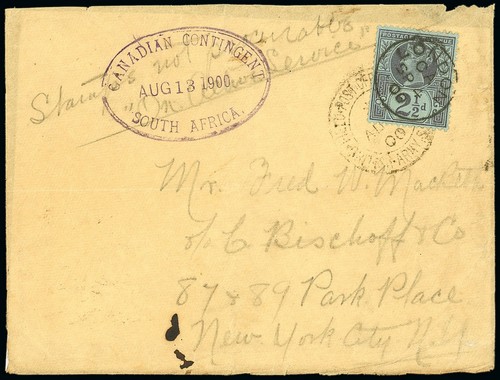 Stamps not procurable
"On Active Service"
CANADIAN CONTINGENT
AUG 13 1900
SOUTH AFRICA.
POSTAGE
2½d
ARMY
00
Mr. Fred W. Mackett
c/o C Bischoff & Co
87 & 89 Park Place
New York City N.Y